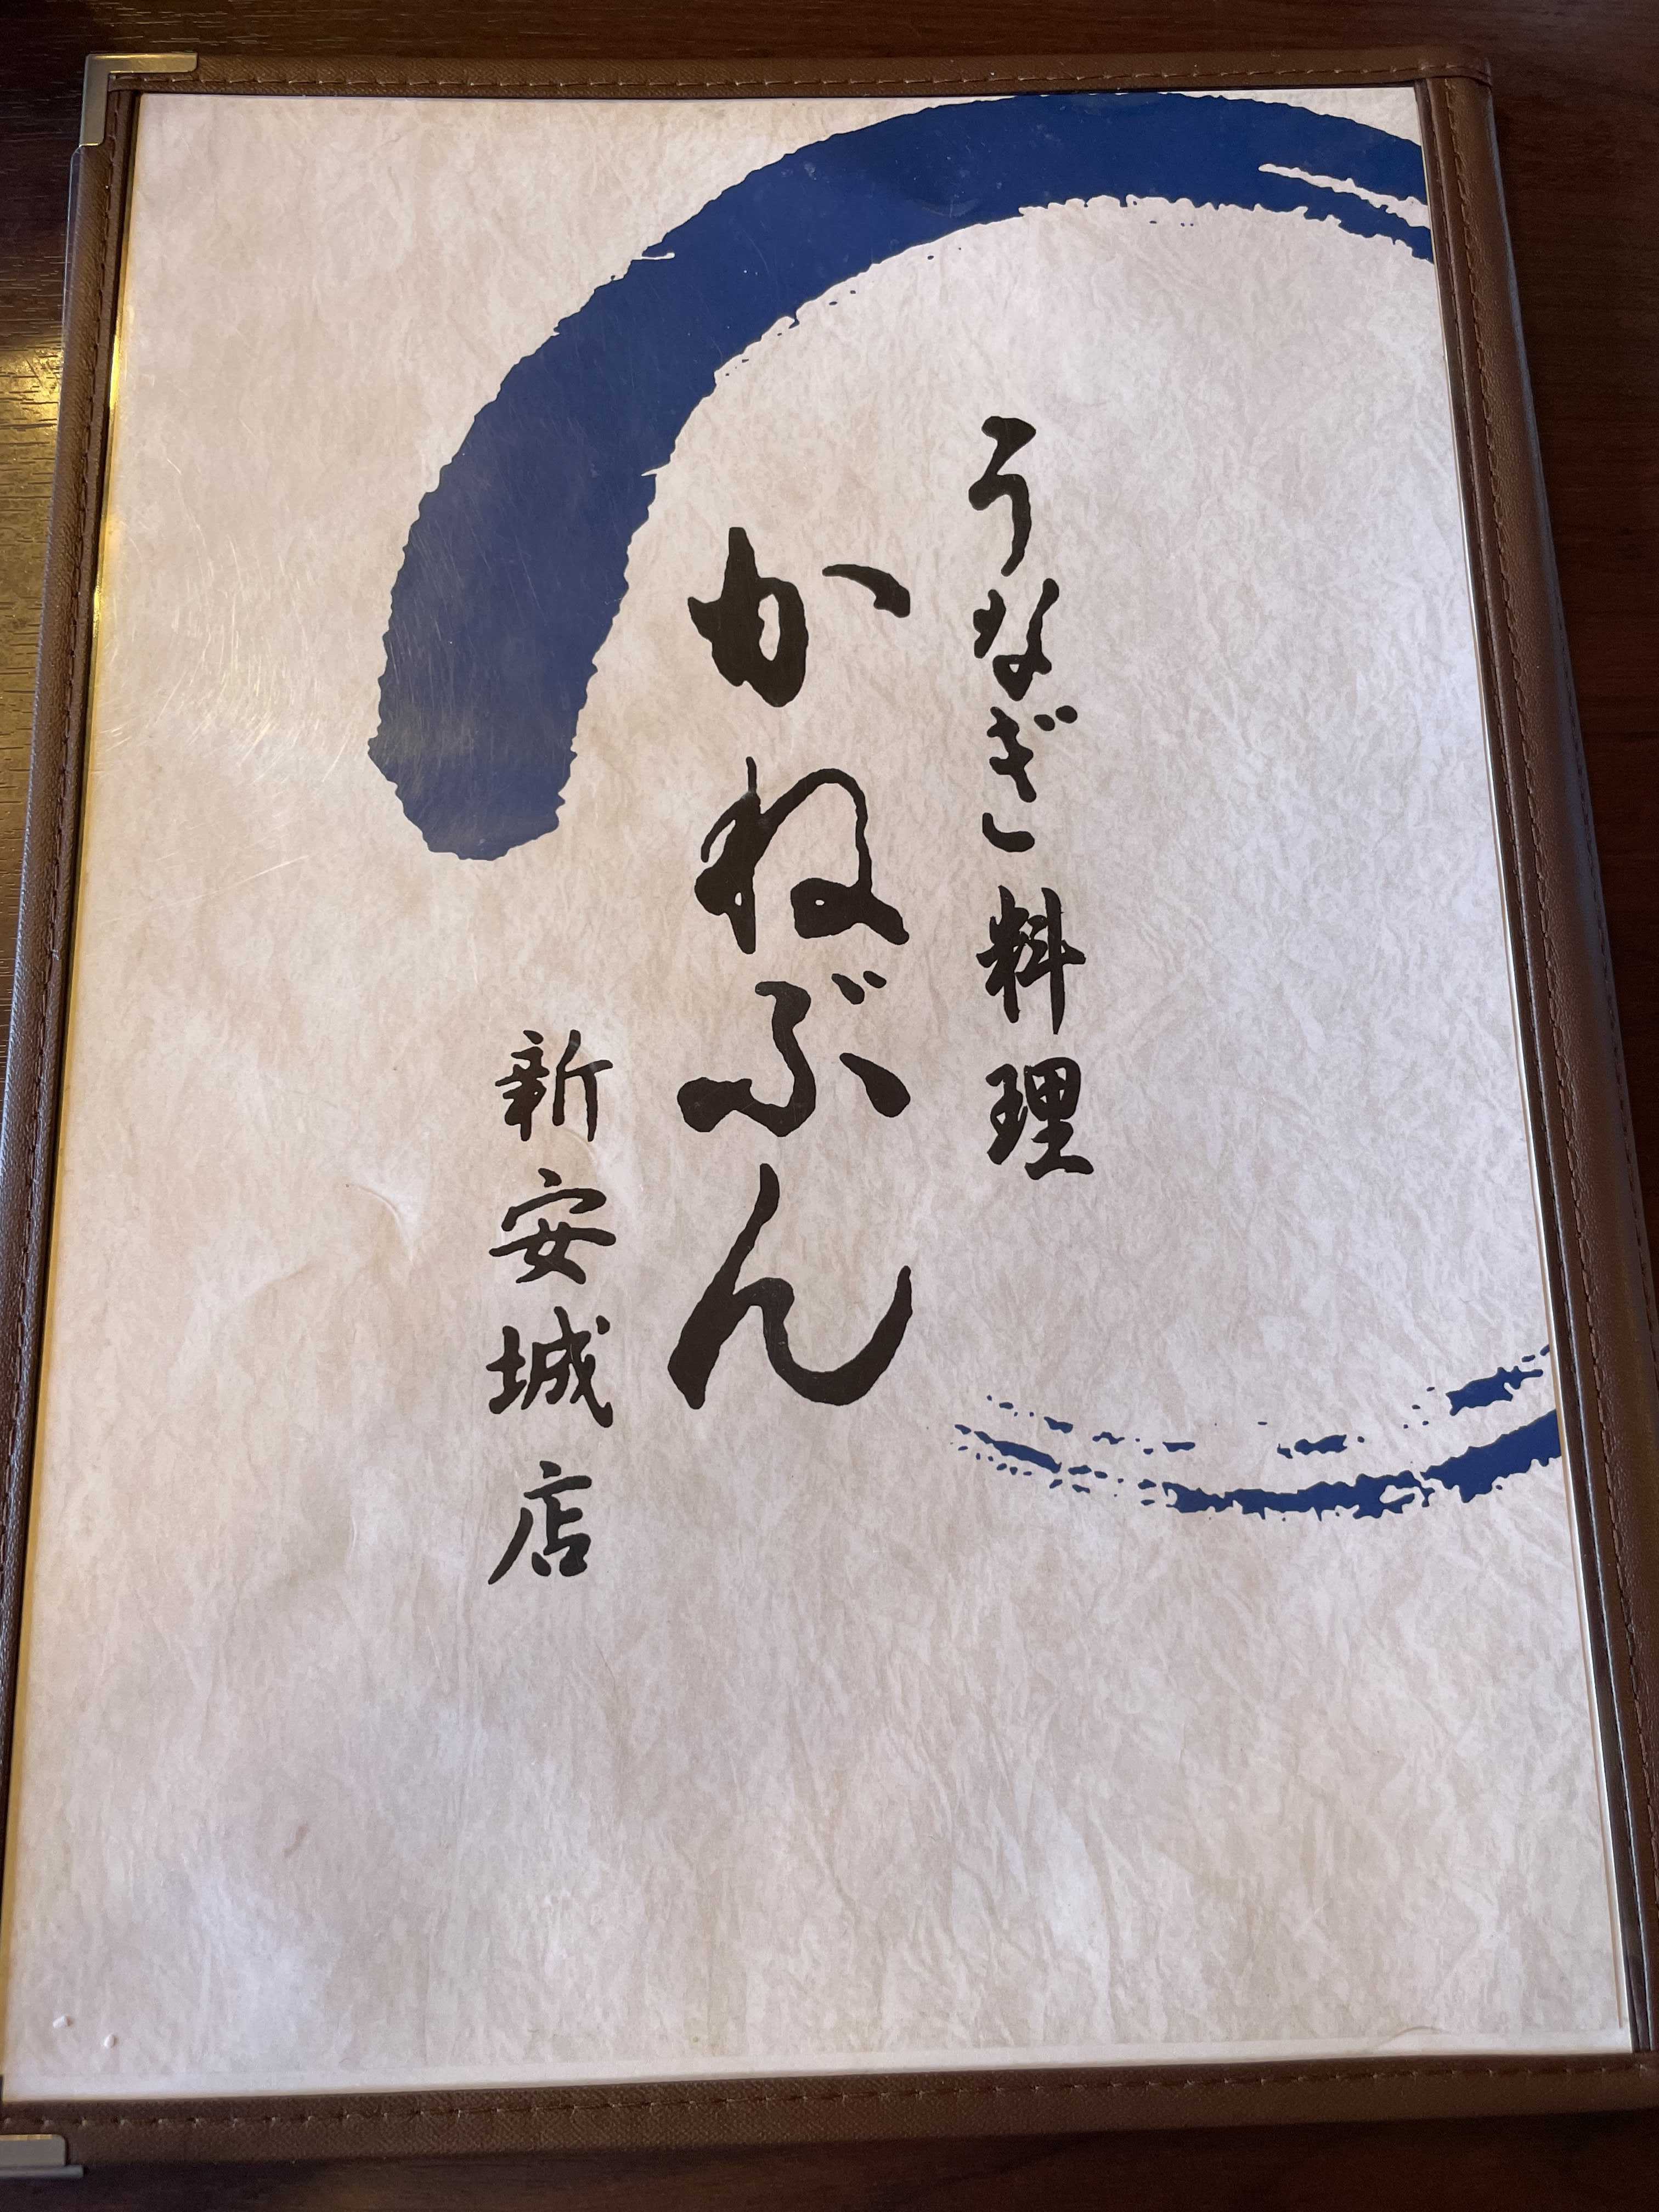 うなぎ料理
かねぶん
新安城店